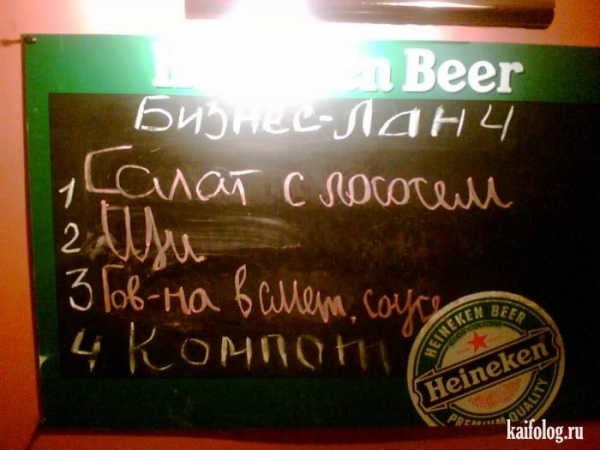 en Beer
Бизнес-Ланч
1 Салат с лососем
2 Щи
3 Гов-на в смет. соусе
4 Компот
HEINEKEN BEER
Heineken
PREMIUM QUALITY
kaifolog.ru